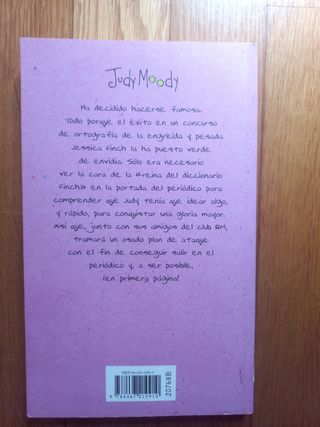 Judy Moody
Ha decidido hacerse famosa.
Todo porque el éxito en un concurso
de ortografía de la engreída y pesada
Jessica Finch la ha puesto verde
de envidia. Sólo era necesario
ver la cara de la «reina del diccionario
Finch» en la portada del periódico para
comprender que Judy tenía que idear algo,
y rápido, para conquistar una gloria mayor.
Así que, junto con sus amigos del club RM,
tramará un osado plan de ataque
con el fin de conseguir salir en el
periódico y, a ser posible,
¡en primera página!
9 788467 210910
20768B